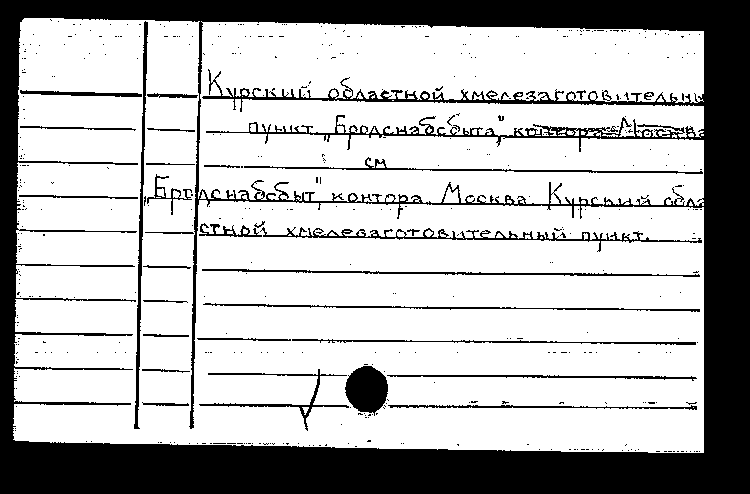 Курский областной хмелезаготовительны
пункт „Бродснабсбыта", контора Москва
см
„Бродснабсбыт", контора. Москва. Курский обла
стной хмелезаготовительный пункт.